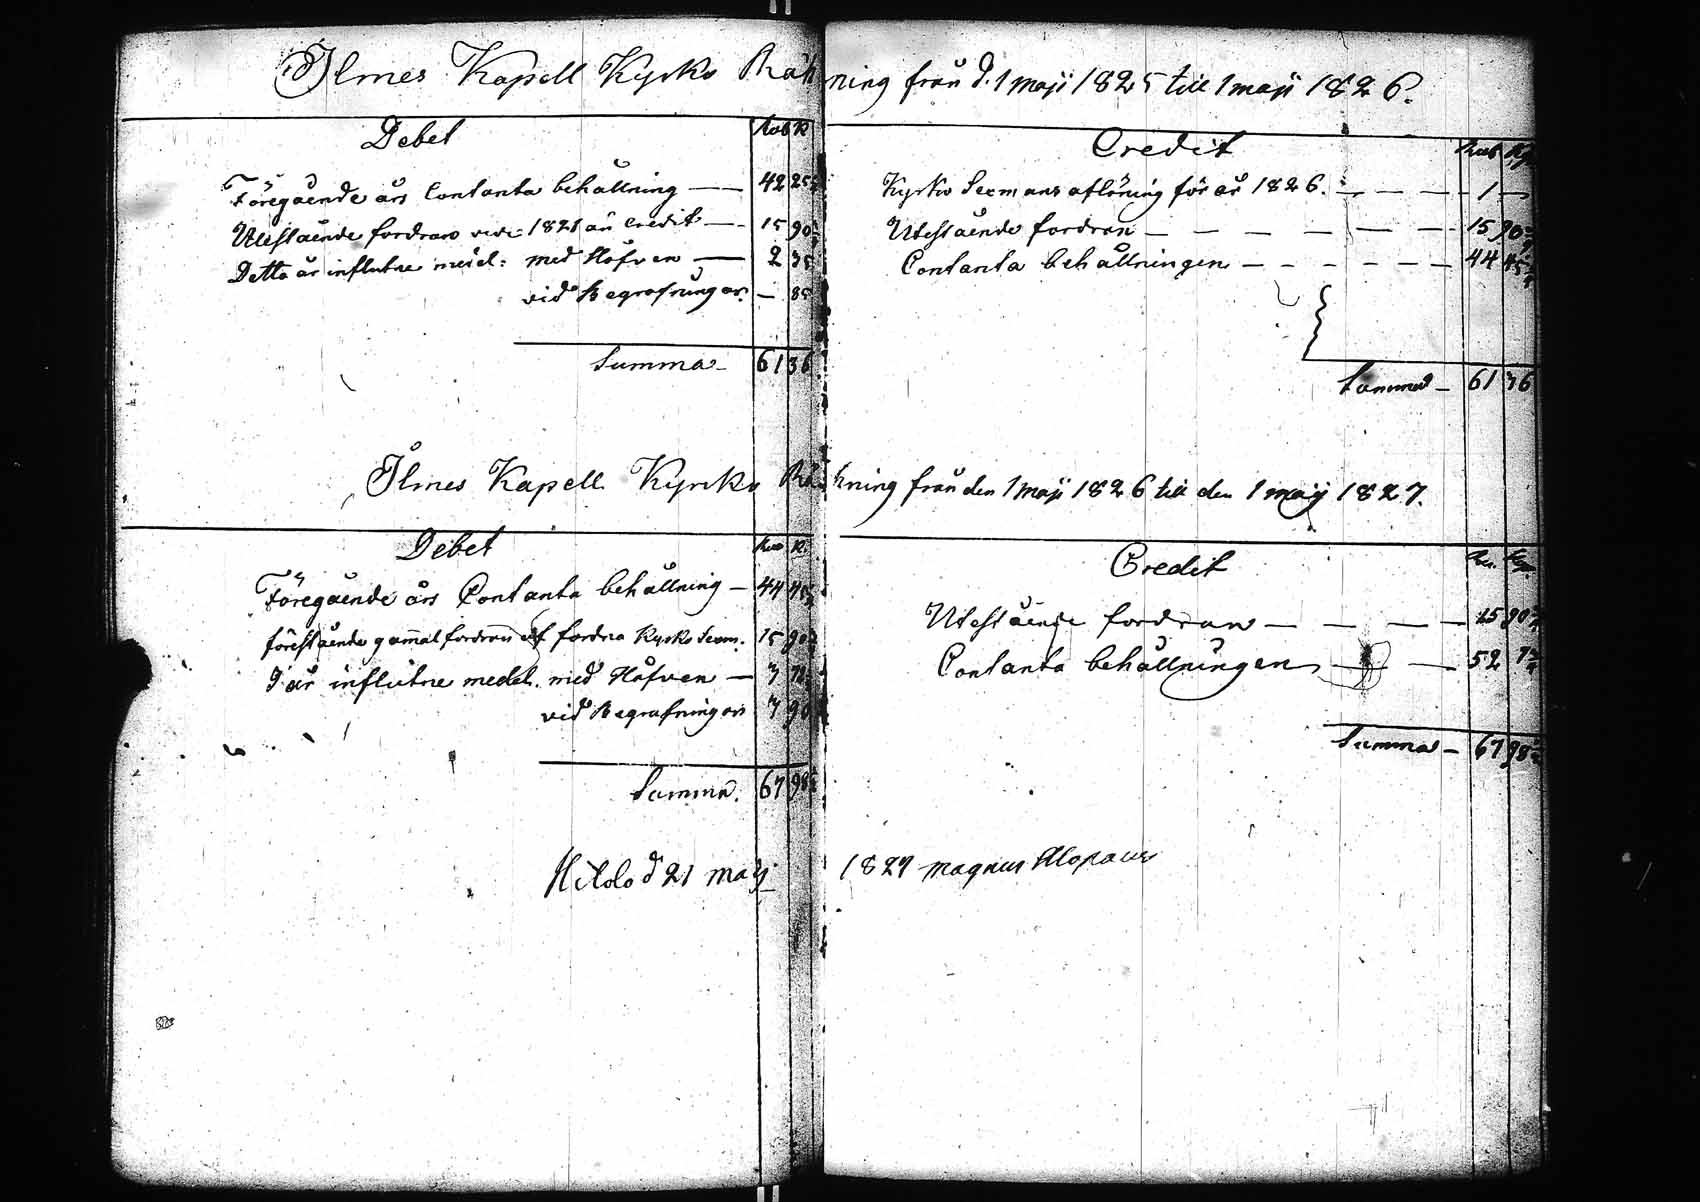 Ilmes Kapell Kyrko Räkning från d. 1 maji 1825 till 1 maji 1826.
Debet
Rub K
Föregående års Contanta behållning — 42 25
Utestående fordran vide 1821 års Credit — 15 90
Detta år influtne medel: med Håfven — 2 35
vid Begrafningar. — 85
Summa — 61 36
Credit
Rub Kp
Kyrko Sexmans aflöning för år 1826. — 1 —
Utestående fordran — 15 90
Contanta behållningen — 44 45
Summa — 61 36
Ilmes Kapell Kyrko Räkning från den 1 maji 1826 till den 1 maij 1827.
Debet
Rub K.
Föregående års Contanta behållning — 44 45
förestående gammal fordran af fordna Kyrko Sexm. 15 90
I år influtne medel. med Håfven — 3
vid Begrafningar 3 90
Summa. 67 98
Credit
Ru. Kop.
Utestående fordran — 15 90
Contanta behållningen — 52 7
Summa — 67 98
Hitolo d 21 maij 1827 Magnus Alopaeus